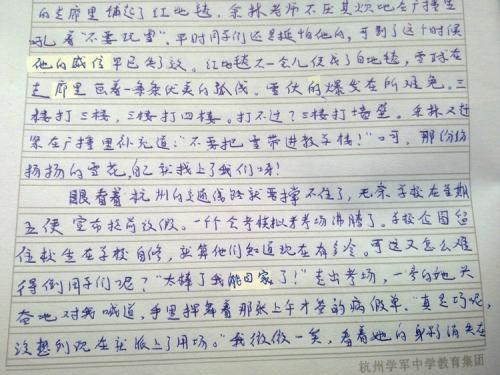 的走廊里铺起了红地毯,宋林老师不厌其烦地在广播里
吼着“不要玩雪”。平时同学们还是挺怕他的,可到了这个时候
他的威信早已失了效。红地毯不一会儿便成了白地毯,雪球在
走廊里画着一条条优美的弧线。雪仗的爆发在所难免。三
楼打三楼,三楼打四楼。打不过?三楼打墙壁。宋林又赶
紧在广播里补充道:“不要把雪带进教学楼!”可,那纷纷
扬扬的雪花,自己就找上了我们呀!
眼看着杭州的交通线路就要撑不住了,无奈学校在星期
五便宣布提前放假。一个个会考模拟考考场沸腾了。学校企图留
住校生在学校自修,就算他们知道现在有多冷。可这又怎么难
得倒同学们呢?“太棒了我能回家了!”走出考场,一号的她兴
奋地对我喊道,手里挥舞着那张上午才签的病假单。“真是巧呢,
没想到现在就派上了用场。”我微微一笑,看着她的身影消失在
杭州学军中学教育集团